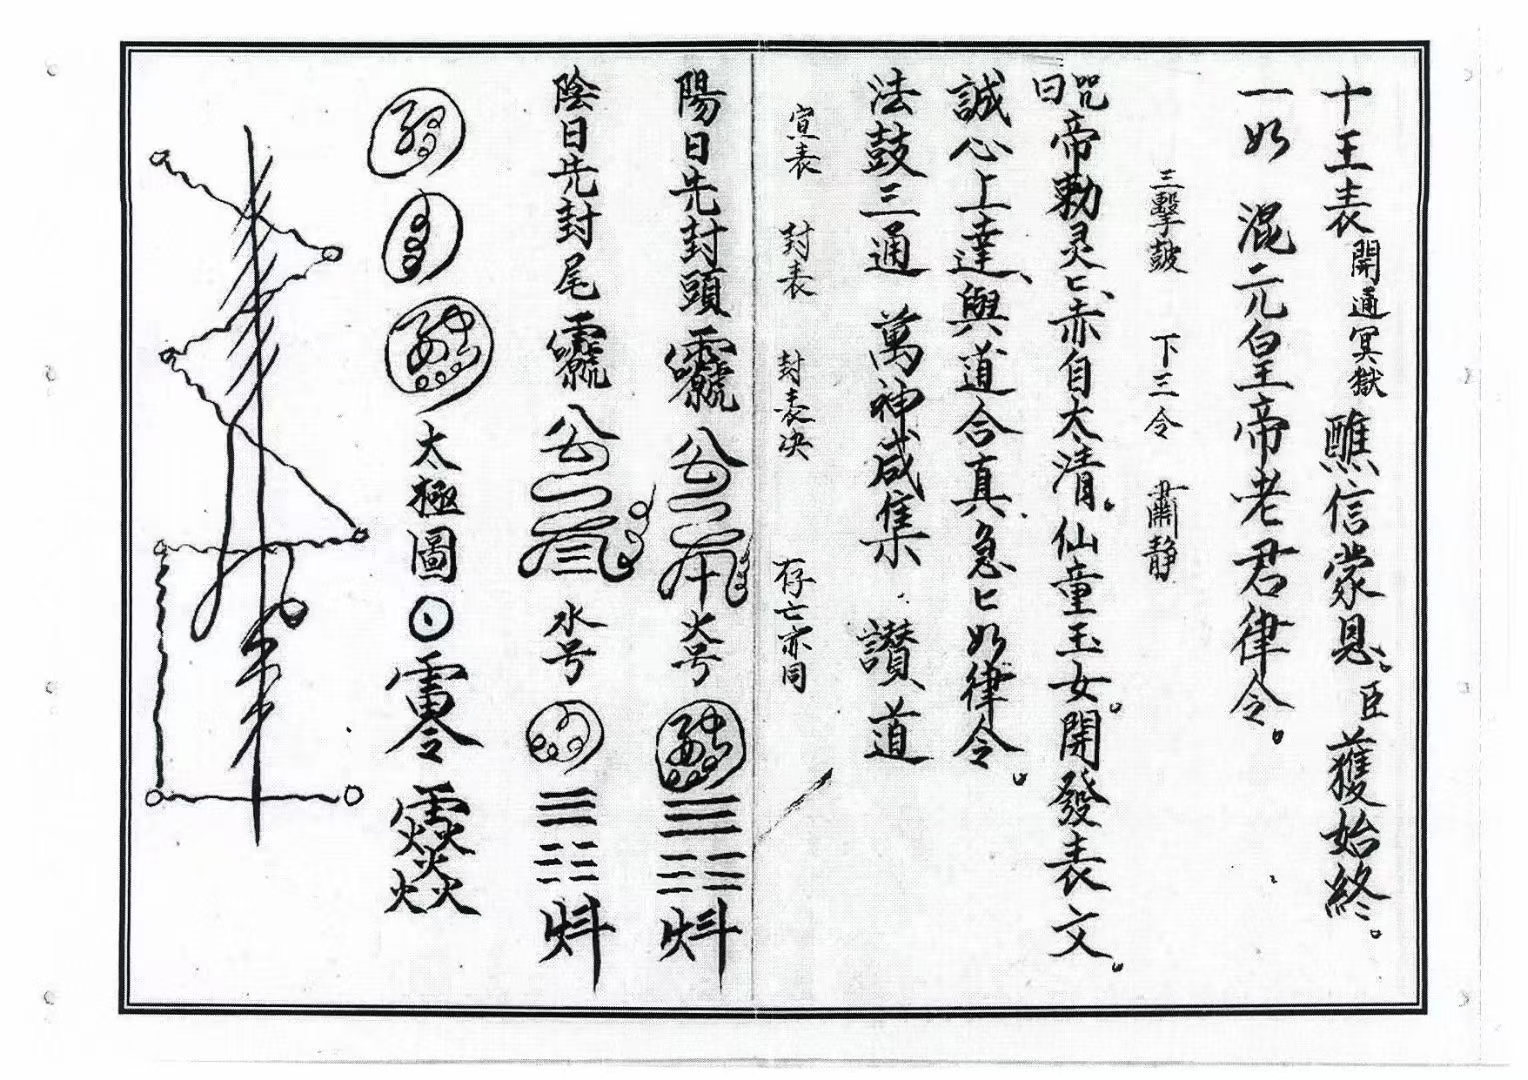 十王表 開通冥獄 醮信蒙恩。臣獲始終。
一如 混元皇帝老君律令。
三擊鼓 下三令 肅静
咒曰 帝勅灵匕、赤自太清。仙童玉女。開發表文。
誠心上達、與道合真、急匕如律令。
法鼓三通 萬神咸集 讃道
宣表 封表 封表决 存亡亦同
陽日先封頭 公 火号 ☰ ☷ 炓
陰日先封尾 公 水号 ☰ ☷ 炓
太極圖 雷令